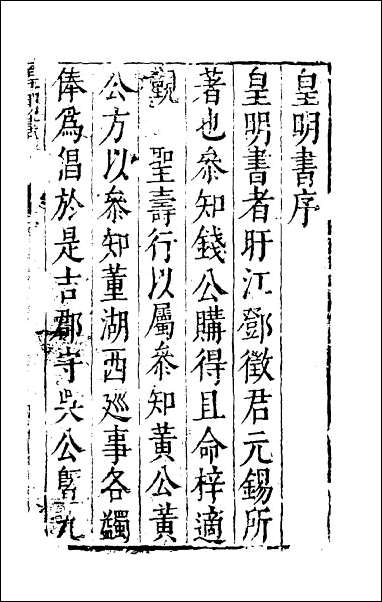 皇明書序
皇明書者盱江鄧徵君元錫所
著也叅知錢公購得且命梓適
覲　聖壽行以屬叅知黃公黃
公方以叅知董湖西廵事各蠲
俸為倡於是吉郡守吳公暨九